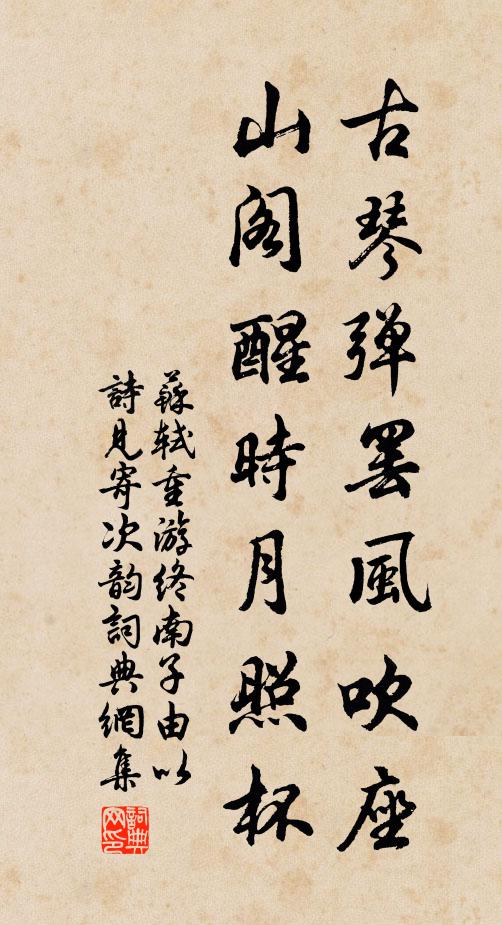 古琴弹罢風吹座
山阁醒時月照杯
蘇軾重游终南子由以
詩見寄次韵詞典網集
詞典网印